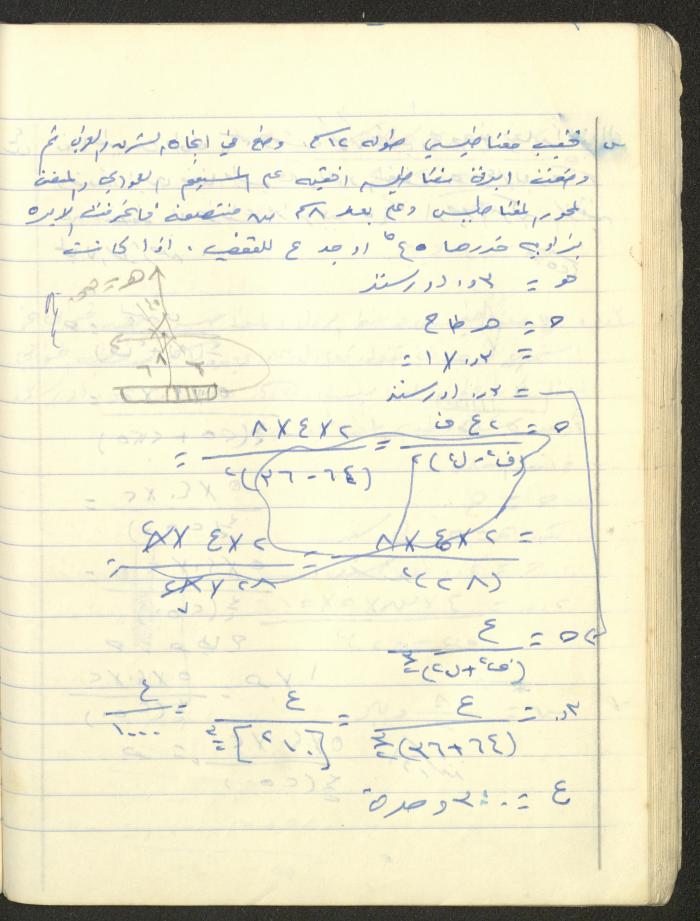 س قضيب مغناطيسي طوله ١٢ سم وضع في اتجاه الشرق والغرب ثم
وضعت ابرة مغناطيسية افقية على المستقيم العمودي والمنصف
لمحور المغناطيس وعلى بعد ٨ سم من منتصفه فانحرفت الابره
بزاوية قدرها ٤٥° اوجد ع للقضيب . اذا كانت
هـ = ٣ر. اورستد
ح = هـ طا ح
= ٣ر. × ١ =
= ٣ر. اورستد
ح = ٢ ع ف / (ف٢ - ل٢)٢ = ٢ × ع × ٨ / (٦٤ - ٣٦)٢ =
= ٢ × ع × ٨ / (٢٨)٢ = ٢ × ع × ٨ / ٢٨ × ٢٨ =
ح = ع / (ف٢ + ل٢)٣/٢
٣ر. = ع / (٦٤ + ٣٦)٣/٢ = ع / [٢١٠]٣/٢ = ع / ١٠٠٠
ع = ٣٠٠ وحدة